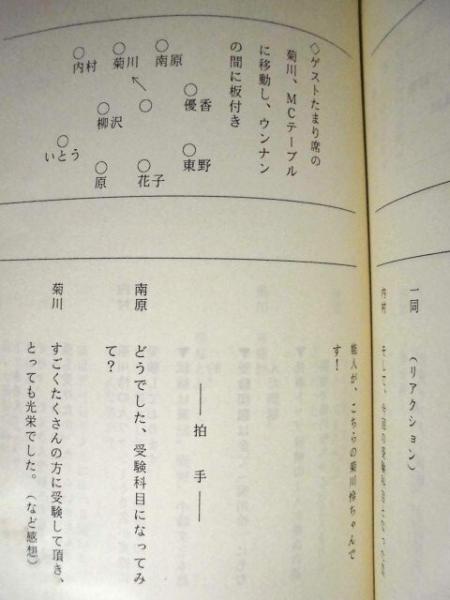 一同　（リアクション）
内村　そして、今回の受験科目となった芸
能人が、こちらの菊川怜ちゃんで
す！
◇ゲストたまり席の
菊川、ＭＣテーブル
に移動し、ウンナン
の間に板付き
○南原
○菊川
○内村
○優香
○
○柳沢
○いとう
○東野
○花子
○原
――拍手――
南原　どうでした、受験科目になってみ
て？
菊川　すごくたくさんの方に受験して頂き、
とっても光栄でした。（など感想）